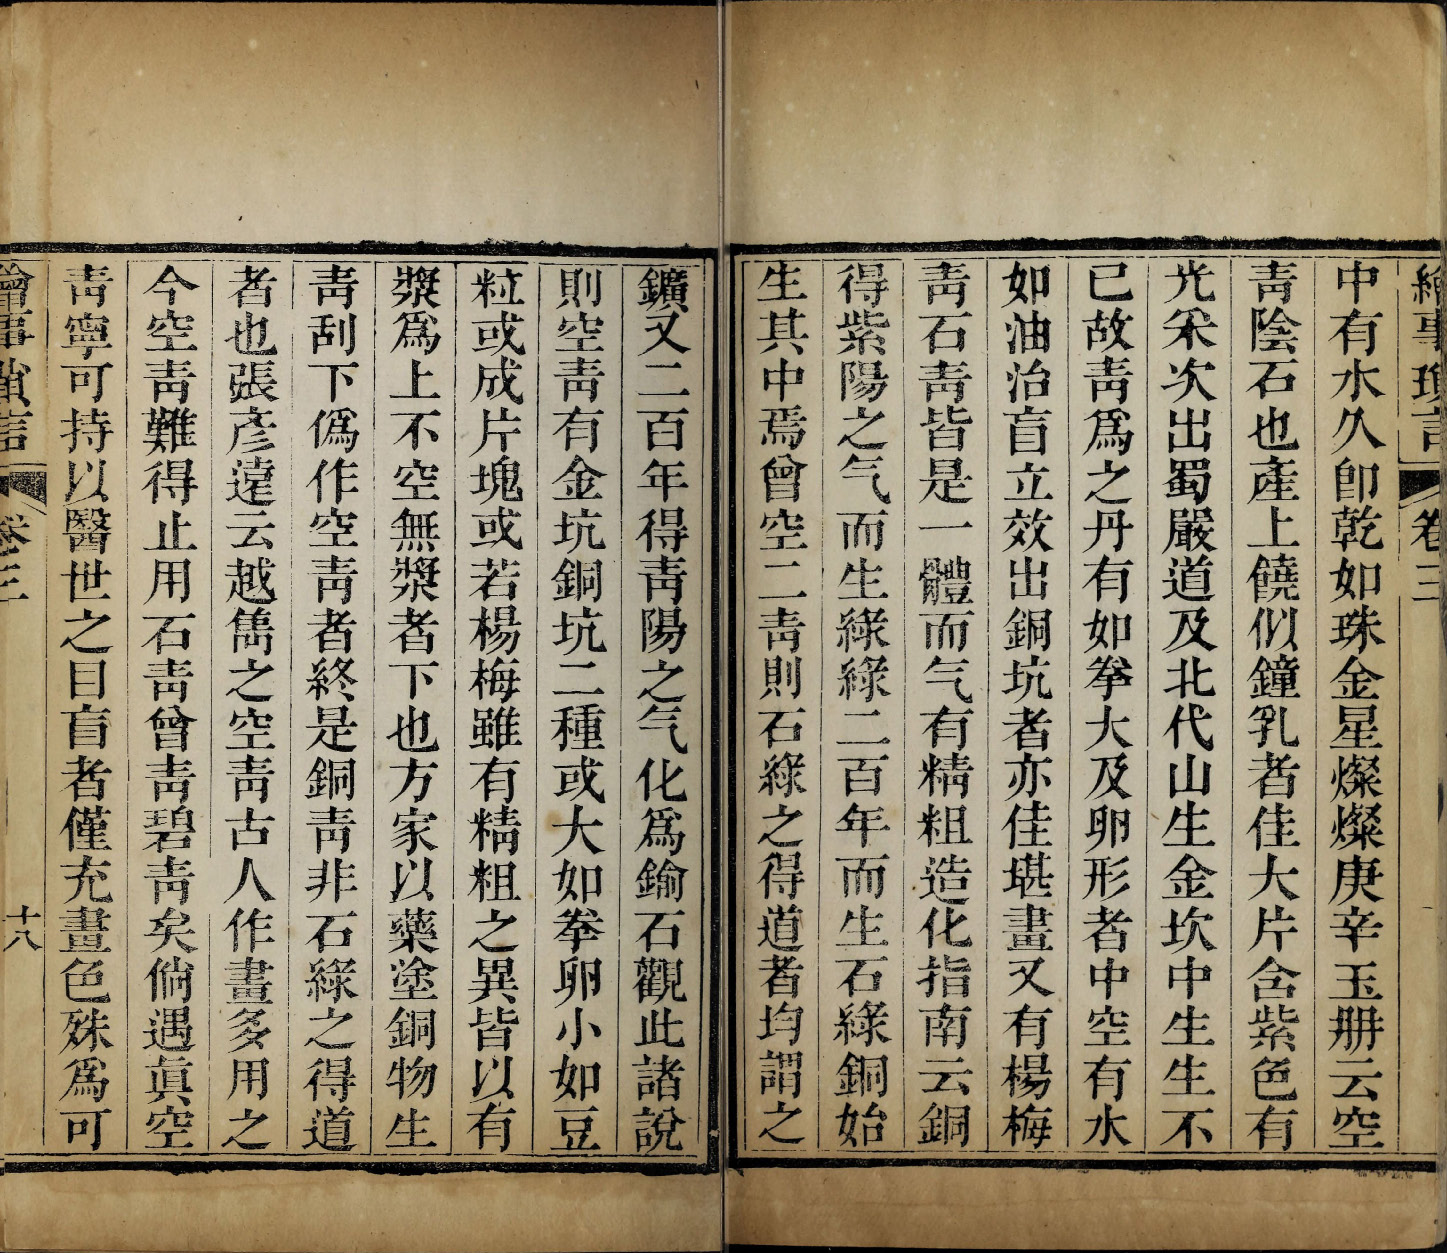 繪事瑣言 卷三
中有水久卽乾如珠金星燦燦庚辛玉册云空
靑陰石也產上饒似鐘乳者佳大片含紫色有
光采次出蜀嚴道及北代山生金坎中生生不
已故靑爲之丹有如拳大及卵形者中空有水
如油治盲立效出銅坑者亦佳堪畫又有楊梅
靑石靑皆是一體而气有精粗造化指南云銅
得紫陽之气而生綠綠二百年而生石綠銅始
生其中焉曾空二靑則石綠之得道者均謂之
鑛又二百年得靑陽之气化爲鍮石觀此諸說
則空靑有金坑銅坑二種或大如拳卵小如豆
粒或成片塊或若楊梅雖有精粗之異皆以有
漿爲上不空無漿者下也方家以藥塗銅物生
靑刮下僞作空靑者終是銅靑非石綠之得道
者也張彥遠云越雋之空靑古人作畫多用之
今空靑難得止用石靑曾靑碧靑矣倘遇眞空
靑寧可持以醫世之目盲者僅充畫色殊爲可
繪事瑣言 卷三 十八